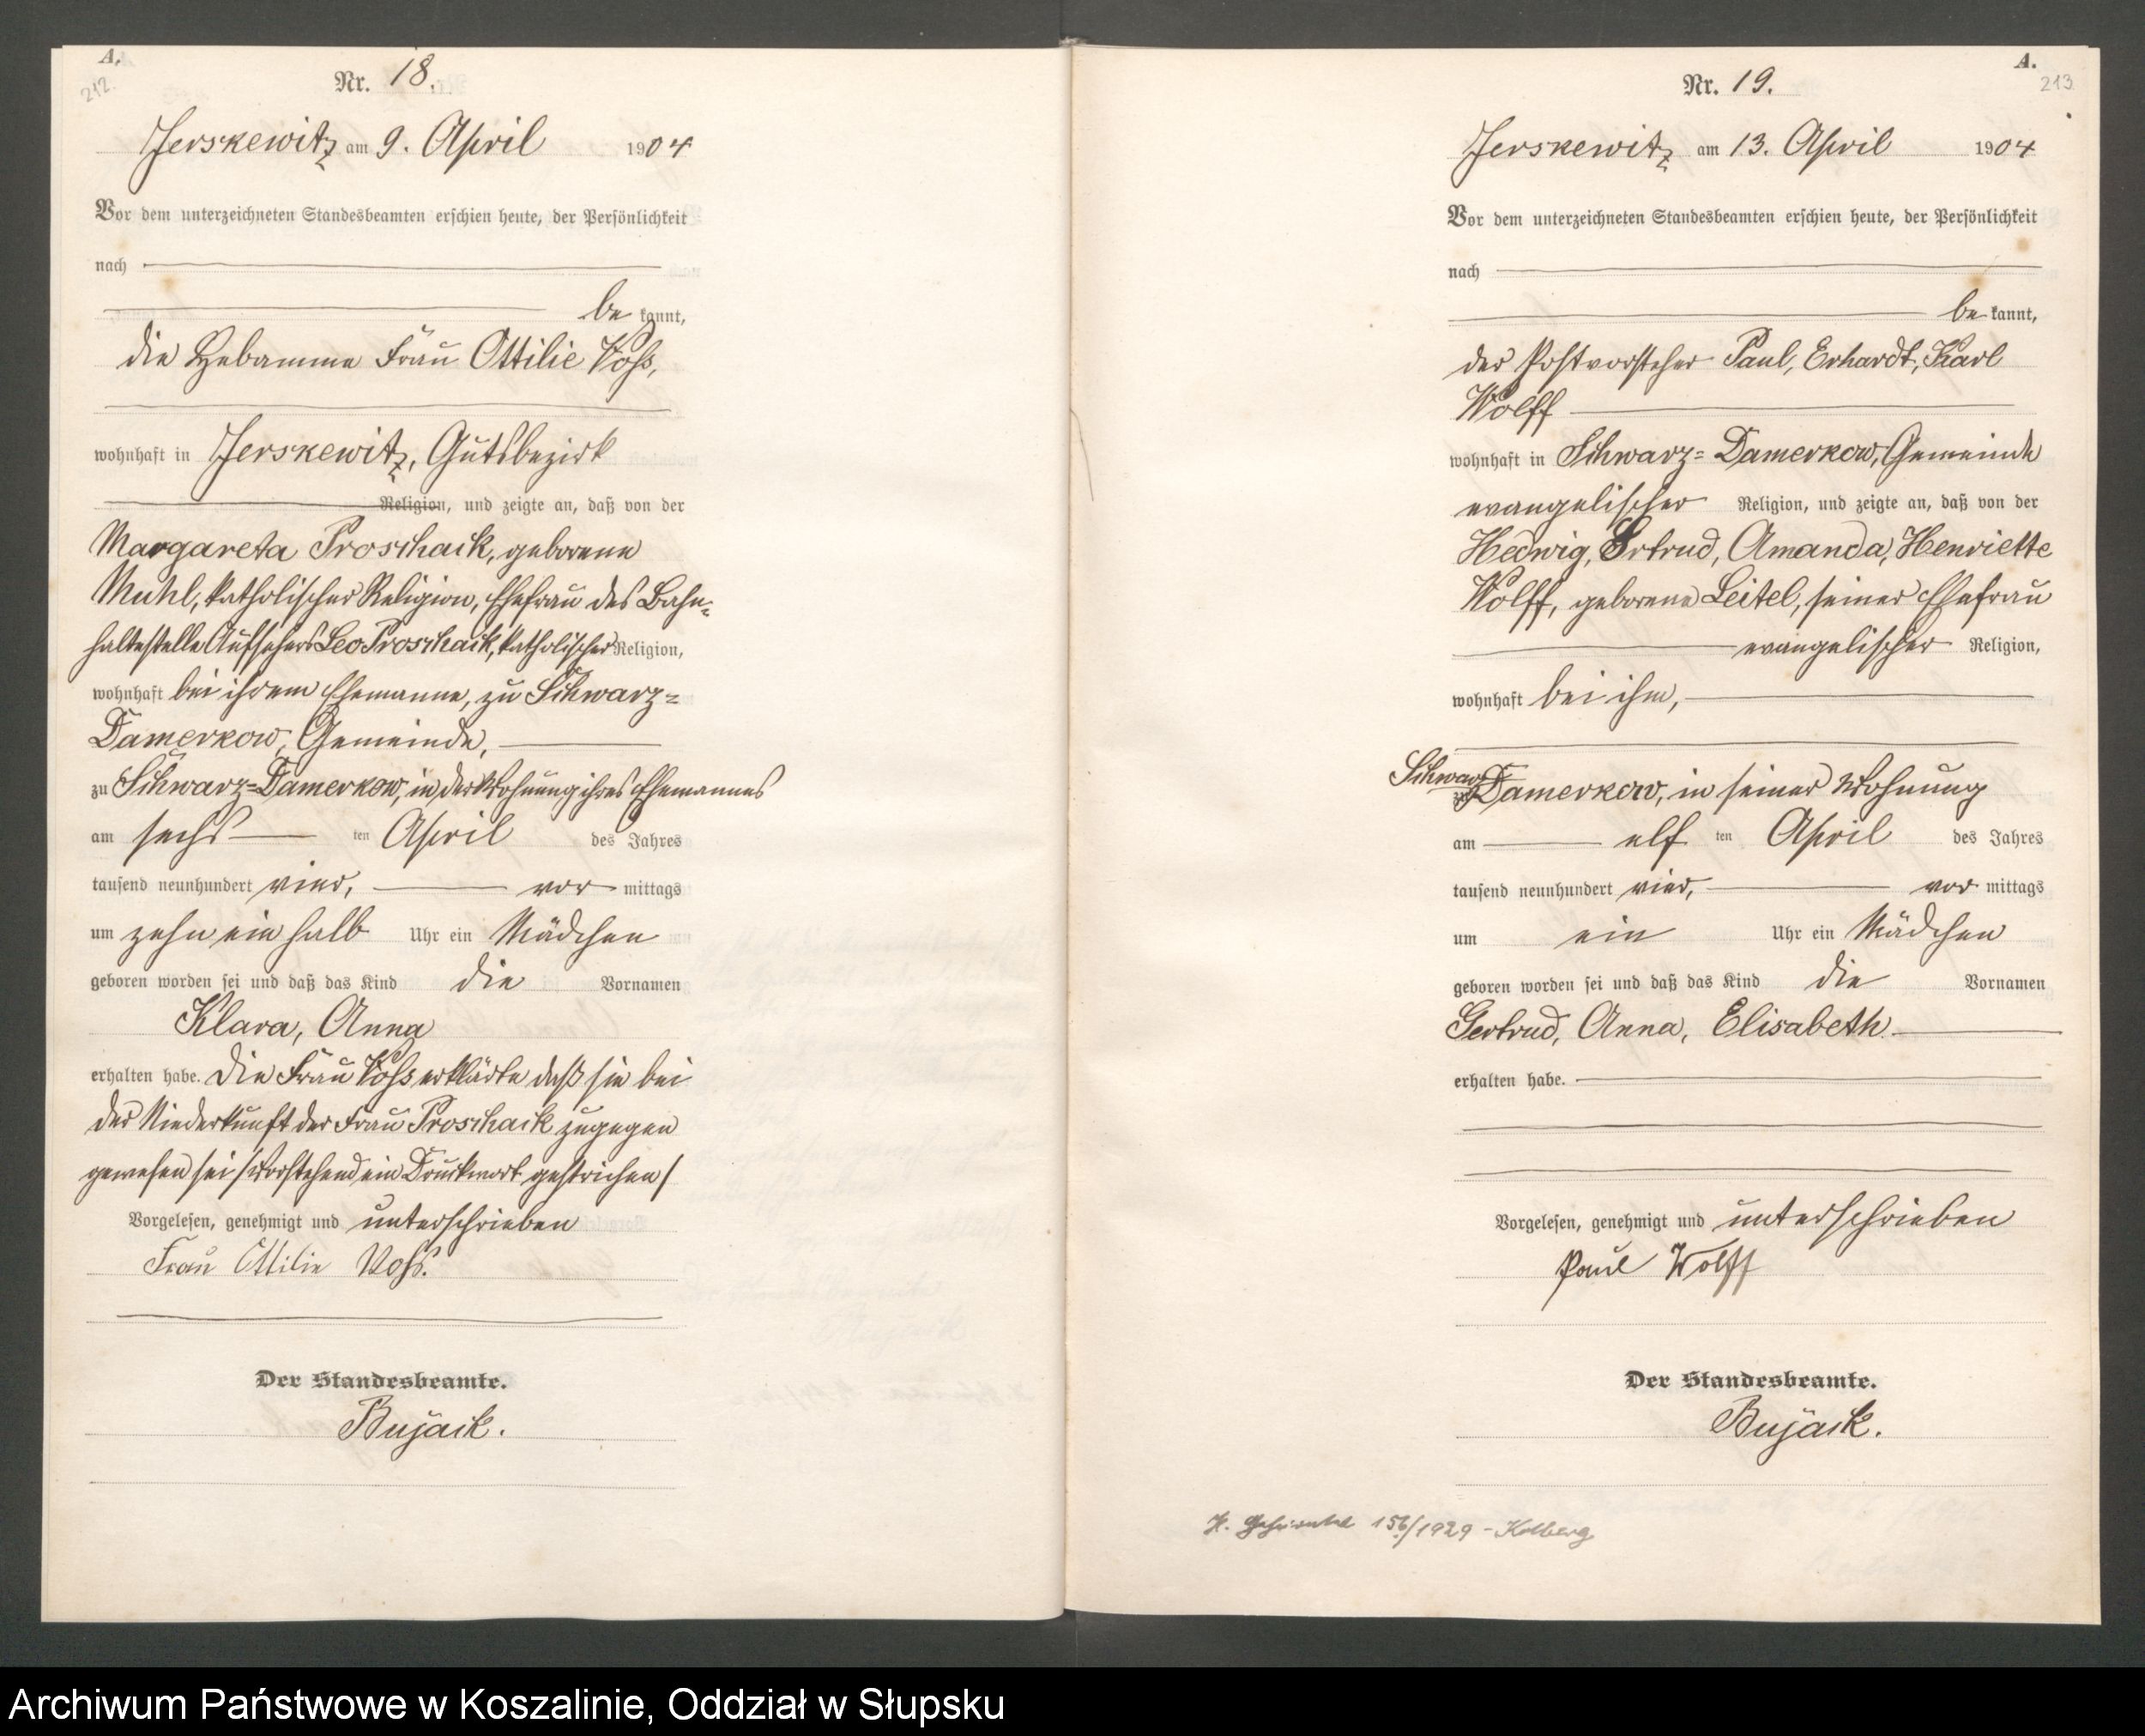 A.
212.
Nr. 18.
Jerskewitz am 9. April 1904
Vor dem unterzeichneten Standesbeamten erschien heute, der Persönlichkeit
nach
be kannt,
die Hebamme Frau Ottilie Voß,
wohnhaft in Jerskewitz, Gutsbezirk
Religion, und zeigte an, daß von der
Margareta Proschack, geborene
Muhl, katholischer Religion, Ehefrau des Bahn-
haltestelle Aufsehers Leo Proschack, katholischer Religion,
wohnhaft bei ihrem Ehemanne, zu Schwarz-
Damerkow, Gemeinde,
zu Schwarz-Damerkow, in der Wohnung ihres Ehemannes
am sechs ten April des Jahres
tausend neunhundert vier, vor mittags
um zehn ein halb Uhr ein Mädchen
geboren worden sei und daß das Kind die Vornamen
Klara, Anna
erhalten habe. Die Frau Voß erklärte daß sie bei
der Niederkunft der Frau Proschack zugegen
gewesen sei /Vorstehend ein Druckwort gestrichen/
Vorgelesen, genehmigt und unterschrieben
Frau Ottilie Voß.
Der Standesbeamte.
Bujack.
A.
213
Nr. 19.
Jerskewitz am 13. April 1904
Vor dem unterzeichneten Standesbeamten erschien heute, der Persönlichkeit
nach
be kannt,
der Postvorsteher Paul, Erhardt, Karl
Wolff
wohnhaft in Schwarz-Damerkow, Gemeinde
evangelischer Religion, und zeigte an, daß von der
Hedwig, Gertrud, Amanda, Henriette
Wolff, geborene Leitel, seiner Ehefrau
evangelischer Religion,
wohnhaft bei ihm,
Schwarz
zu Damerkow, in seiner Wohnung
am elf ten April des Jahres
tausend neunhundert vier, vor mittags
um ein Uhr ein Mädchen
geboren worden sei und daß das Kind die Vornamen
Gertrud, Anna, Elisabeth
erhalten habe.
Vorgelesen, genehmigt und unterschrieben
Paul Wolff
Der Standesbeamte.
Bujack.
1929 - Kolberg
Archiwum Państwowe w Koszalinie, Oddział w Słupsku